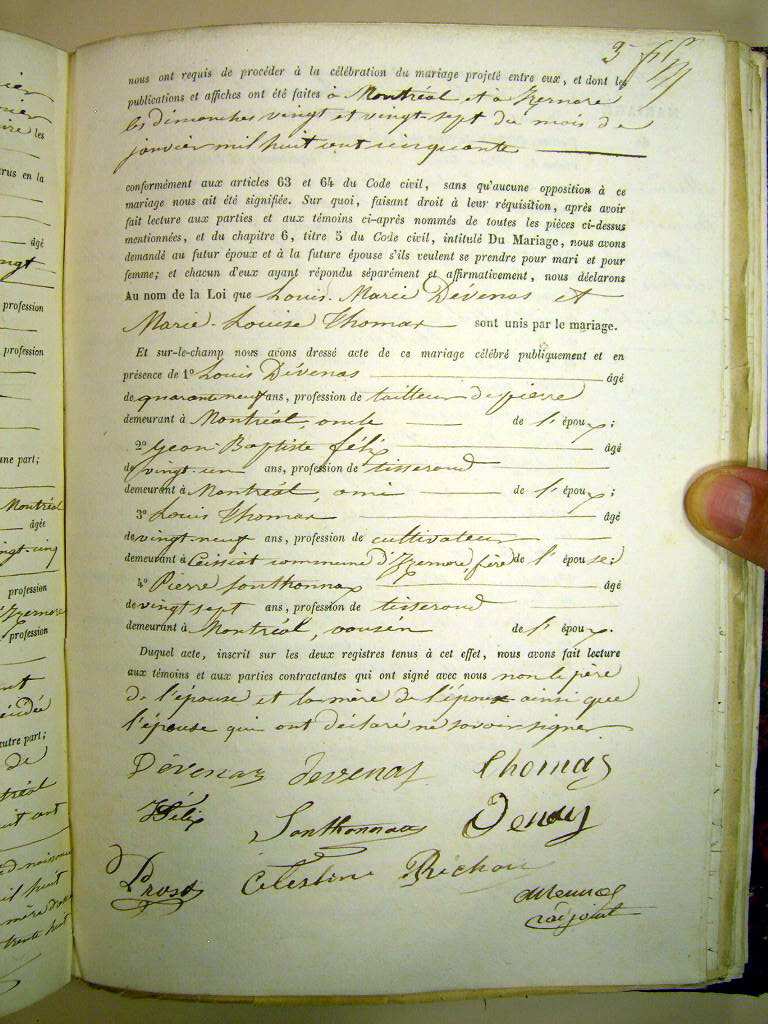 3
nous ont requis de procéder à la célébration du mariage projeté entre eux, et dont les
publications et affiches ont été faites à Montréal et à Izernore
les dimanches vingt et vingt-sept du mois de
janvier mil huit cent cinquante
conformément aux articles 63 et 64 du Code civil, sans qu'aucune opposition à ce
mariage nous ait été signifiée. Sur quoi, faisant droit à leur réquisition, après avoir
fait lecture aux parties et aux témoins ci-après nommés de toutes les pièces ci-dessus
mentionnées, et du chapitre 6, titre 5 du Code civil, intitulé Du Mariage, nous avons
demandé au futur époux et à la future épouse s'ils veulent se prendre pour mari et pour
femme; et chacun d'eux ayant répondu séparément et affirmativement, nous déclarons
Au nom de la Loi que Louis-Marie Dévenas et
Marie-Louise Thomas sont unis par le mariage.
Et sur-le-champ nous avons dressé acte de ce mariage célébré publiquement et en
présence de 1º Louis Dévenas âgé
de quarante neuf ans, profession de tailleur de pierre
demeurant à Montréal, oncle de l'époux;
2º Jean-Baptiste Félix âgé
de vingt-un ans, profession de tisserand
demeurant à Montréal, ami de l'époux;
3º Louis Thomas âgé
de vingt-neuf ans, profession de cultivateur
demeurant à Ceissiat commune d'Izernore, frère de l'épouse;
4º Pierre Sonthonnax âgé
de vingt sept ans, profession de tisserand
demeurant à Montréal, cousin de l'époux.
Duquel acte, inscrit sur les deux registres tenus à cet effet, nous avons fait lecture
aux témoins et aux parties contractantes qui ont signé avec nous non le père
de l'épouse et la mère de l'époux ainsi que
l'épouse qui ont déclaré ne savoir signer
Dévenas Devenas Thomas
Félix Sonthonnax
Prost Célestine Richon
l'adjoint
les
rus en la
âgé
profession
profession
une part;
Montréal
âgée
vingt-cinq
profession
d'Izernore
profession
autre part;
de